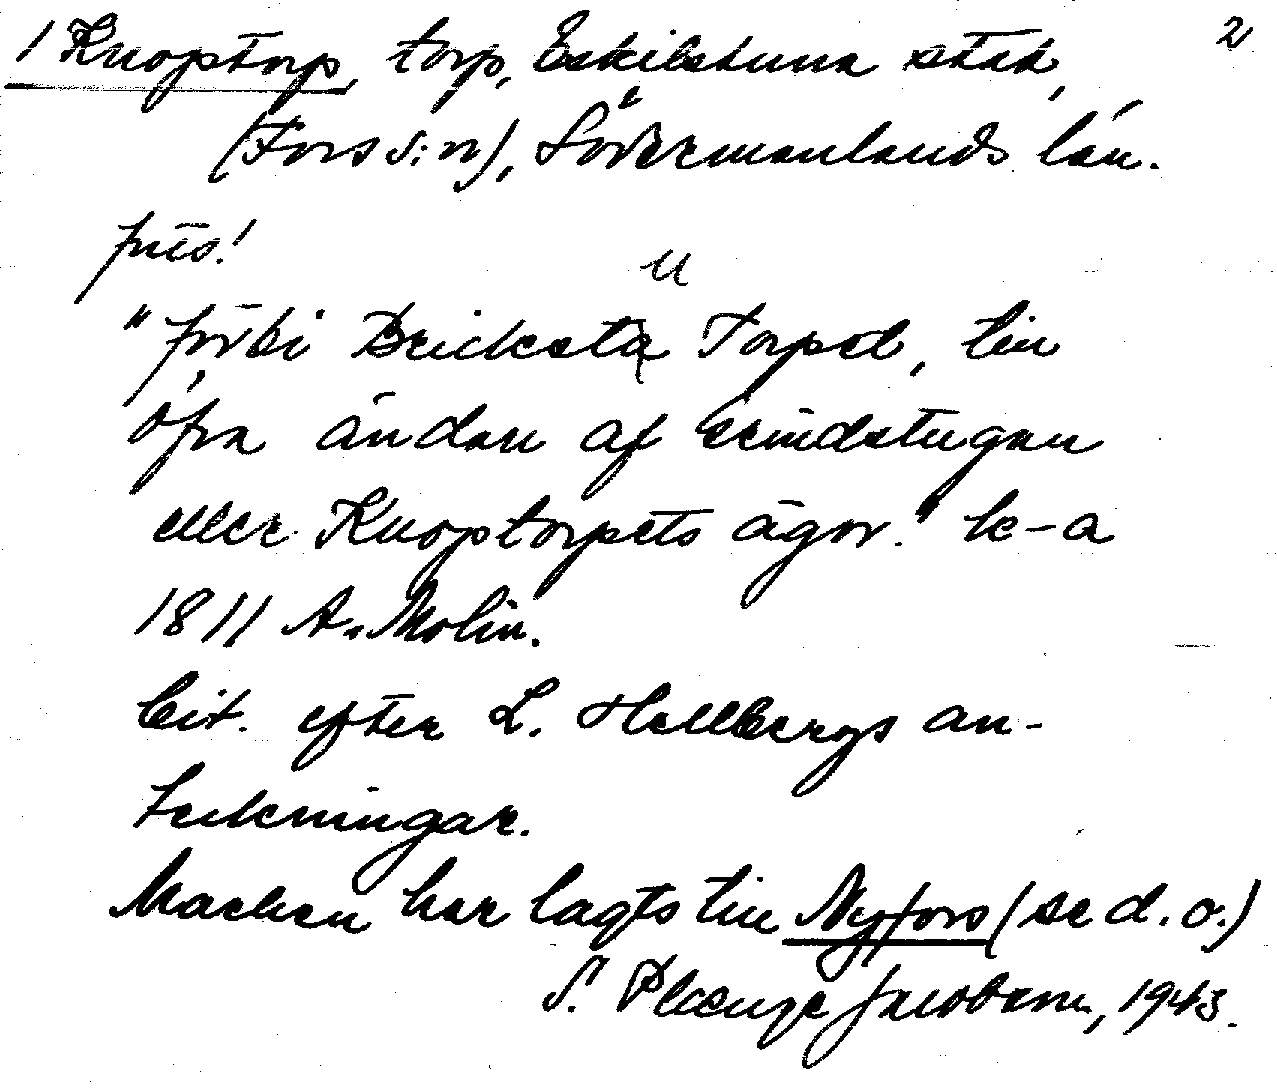 1 Knoptorp, torp, Eskilstuna stad, 2
(Fors s:n), Södermanlands län.
fns!
u
"förbi Bricksta Torpet, till
öfra ändan af Grindstugan
eller Knoptorpets ägor." le-a
1811 A. Molin.
Cit. efter L. Hellbergs an-
teckningar.
Marken har lagts till Nyfors (se d. o.)
S. Plænge Jacobson, 1943.